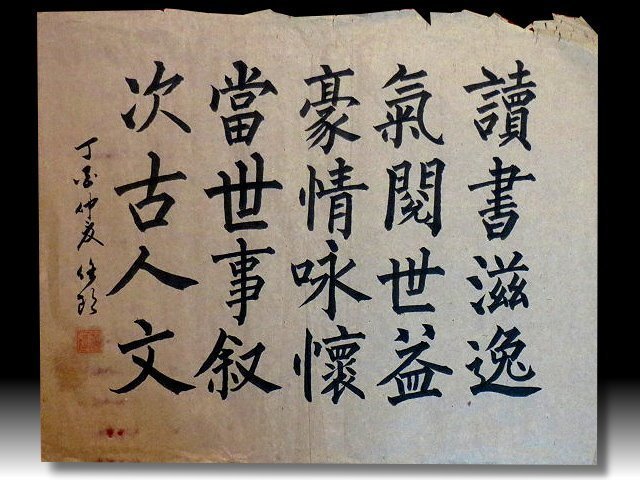 讀書滋逸
氣閱世益
豪情咏懷
當世事叙
次古人文
丁酉仲夏